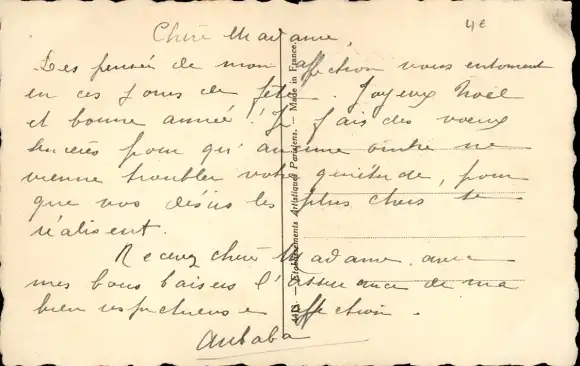 4€
Chère Madame,
Les pensées de mon affection vous entourent
en ces jours de fête. Joyeux Noël
et bonne année ! Je fais des voeux
sincères pour qu'aucune ombre ne
vienne troubler votre quiétude, pour
que vos désirs les plus chers se
réalisent.
Recevez chère Madame avec
mes bons baisers l'assurance de ma
bien respectueuse affection.
— Etablissements Artistiques Parisiens. — Made in France.